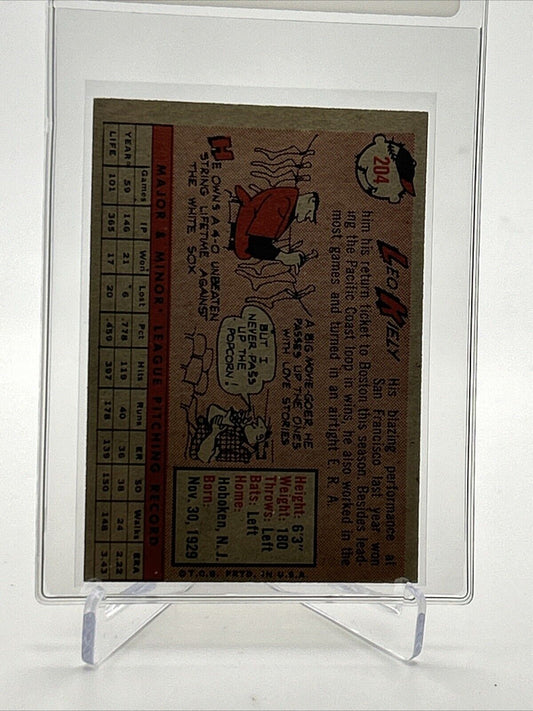 204
LEO KIELY
His blazing performance at
San Francisco last year won
him his return ticket to Boston this season. Besides lead-
ing the Pacific Coast loop in wins, he also worked in the
most games and turned in an airtight E R A.
HE OWNS A 4-0 UNBEATEN
STRING LIFETIME AGAINST
THE WHITE SOX
A BIG MOVIE-GOER, HE
PASSES UP THE ONES
WITH LOVE STORIES
BUT I
NEVER PASS
UP THE
POPCORN!
Height: 6'3"
Weight: 180
Throws: Left
Bats: Left
Home:
Hoboken, N.J.
Born:
Nov. 30, 1929
MAJOR & MINOR LEAGUE PITCHING RECORD
Games IP Won Lost Pct. Hits Runs ER SO Walks ERA
YEAR 59 146 21 6 .778 119 40 36 38 24 2.22
LIFE 101 365 17 20 .459 397 178 139 150 148 3.43
© T.C.G. PRTD. IN U.S.A.